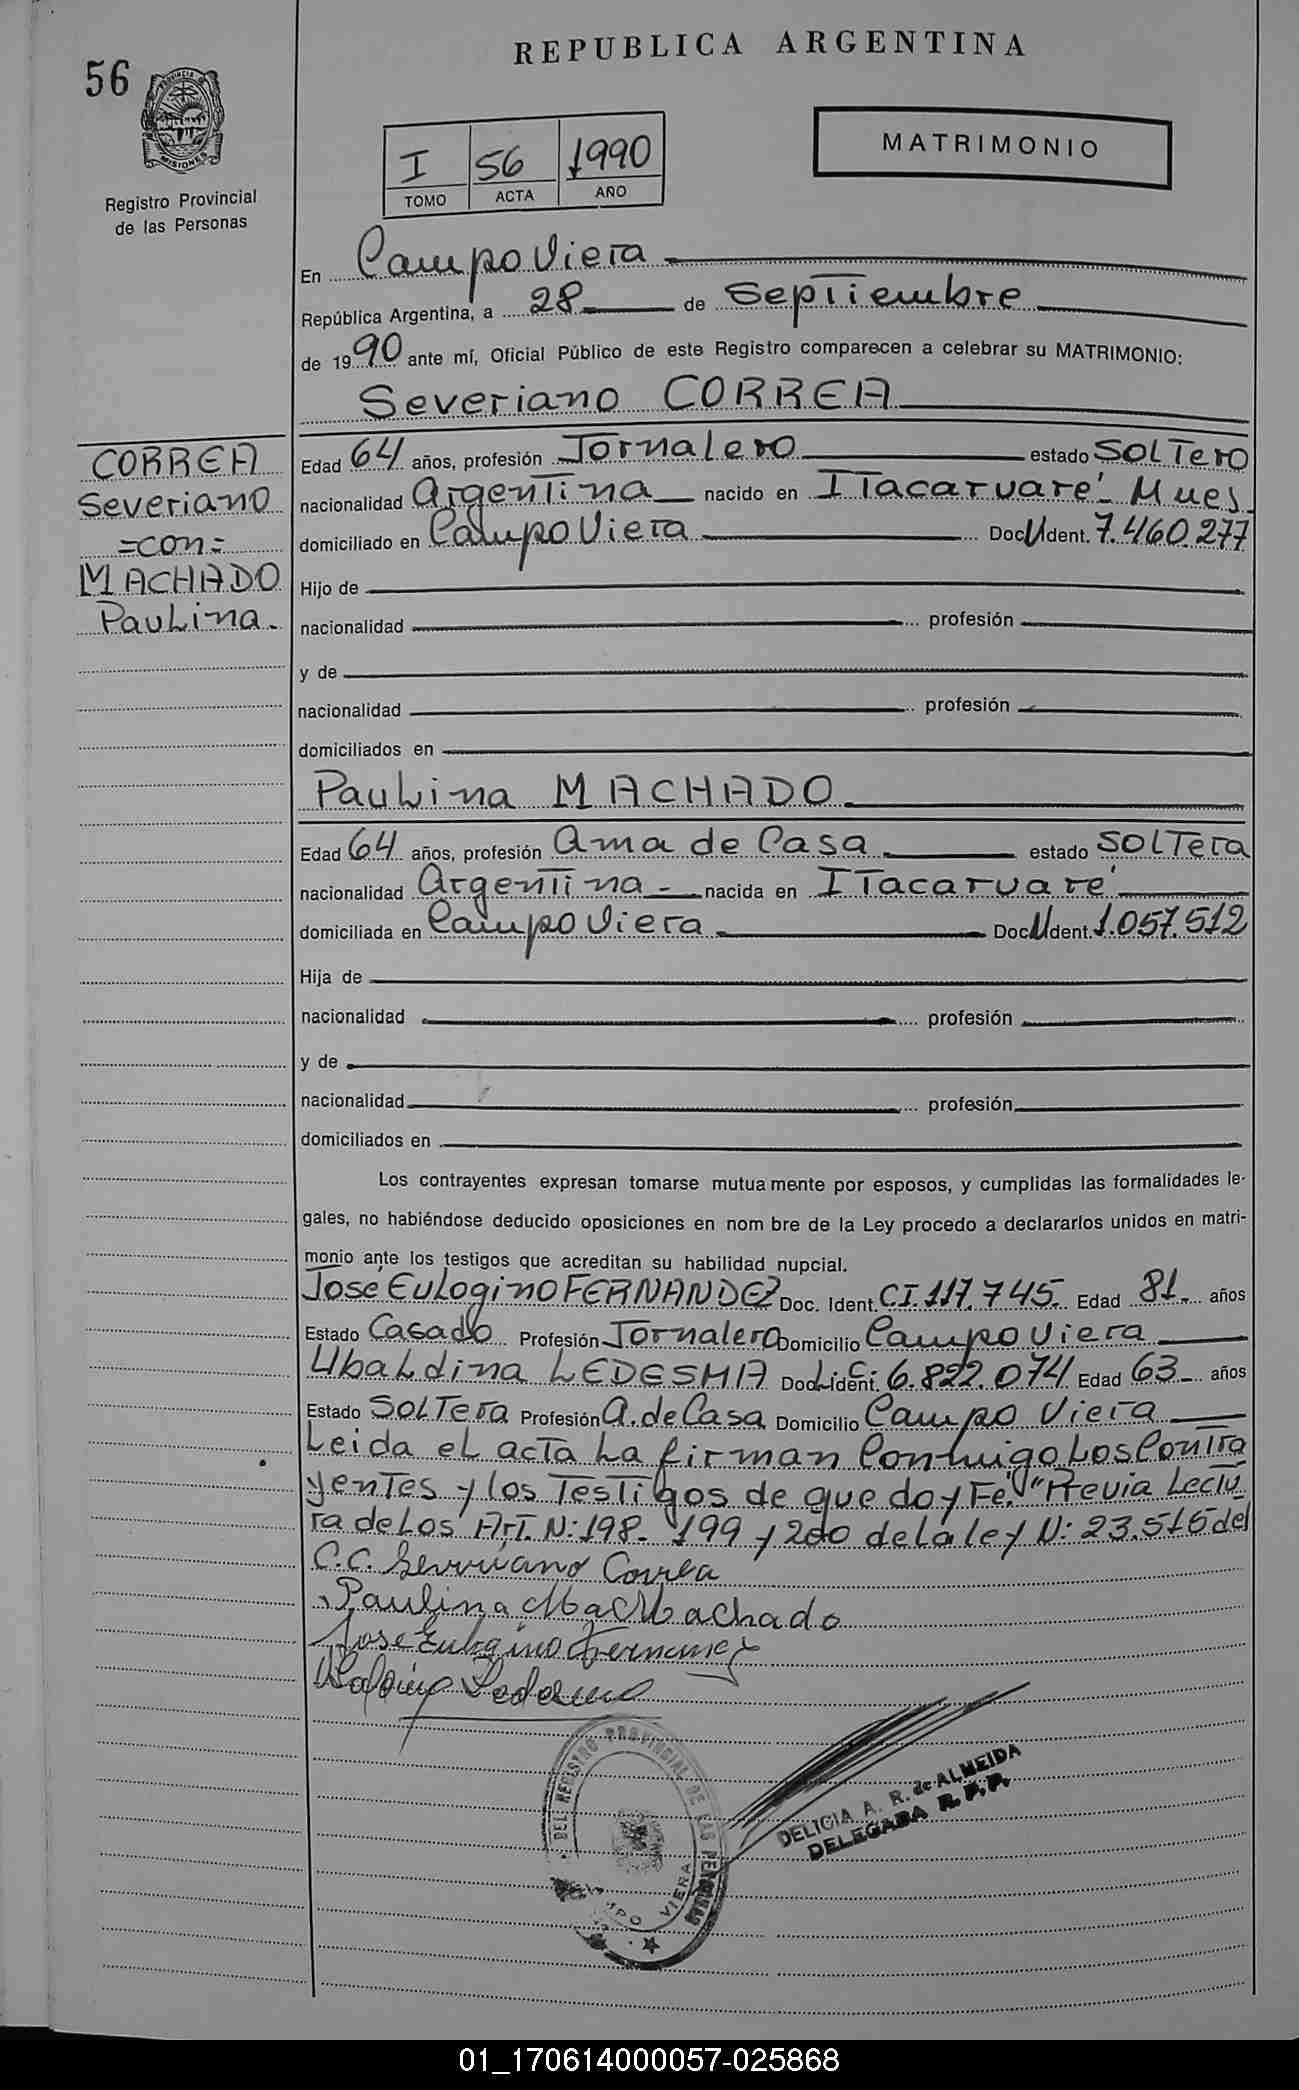 REPUBLICA ARGENTINA
56
PROVINCIA DE
MISIONES
Registro Provincial
de las Personas
I 56 1990
TOMO ACTA AÑO
MATRIMONIO
En Campo Viera
República Argentina, a 28 de Septiembre
de 1990 ante mí, Oficial Público de este Registro comparecen a celebrar su MATRIMONIO:
Severiano CORREA
CORREA
Severiano
=con=
MACHADO
Paulina.
Edad 64 años, profesión Jornalero estado Soltero
nacionalidad Argentina nacido en Itacaruaré
domiciliado en Campo Viera Doc U Ident. 7.460.277
Hijo de
nacionalidad profesión
y de
nacionalidad profesión
domiciliados en
Paulina MACHADO
Edad 64 años, profesión Ama de Casa estado Soltera
nacionalidad Argentina nacida en Itacaruaré
domiciliada en Campo Viera Doc U Ident. 1.057.512
Hija de
nacionalidad profesión
y de
nacionalidad profesión
domiciliados en
Los contrayentes expresan tomarse mutua mente por esposos, y cumplidas las formalidades le-
gales, no habiéndose deducido oposiciones en nom bre de la Ley procedo a declararlos unidos en matri-
monio ante los testigos que acreditan su habilidad nupcial.
José Eulogino FERNANDEZ Doc. Ident. CI.117.745. Edad 81 años
Estado Casado Profesión Jornalero Domicilio Campo Viera
Ubaldina LEDESMA Doc L.C. Ident. 6.822.074 Edad 63 años
Estado Soltera Profesión A. de Casa Domicilio Campo Viera
Leida el acta la firman Conmigo Los Contra
yentes y los Testigos de que doy Fé. "Previa Lectu
ra de Los Art. N: 198. 199 y 200 de la ley N: 23.515 del
C.C. Severiano Correa
Paulina Machado
Jose Eulogino Fernandez
Ubaldina Ledesma
DEL REGISTRO PROVINCIAL DE LAS PERSONAS
CAMPO VIERA
DELICIA A. R. de ALMEIDA
DELEGADA R.P.P.
01_170614000057-025868